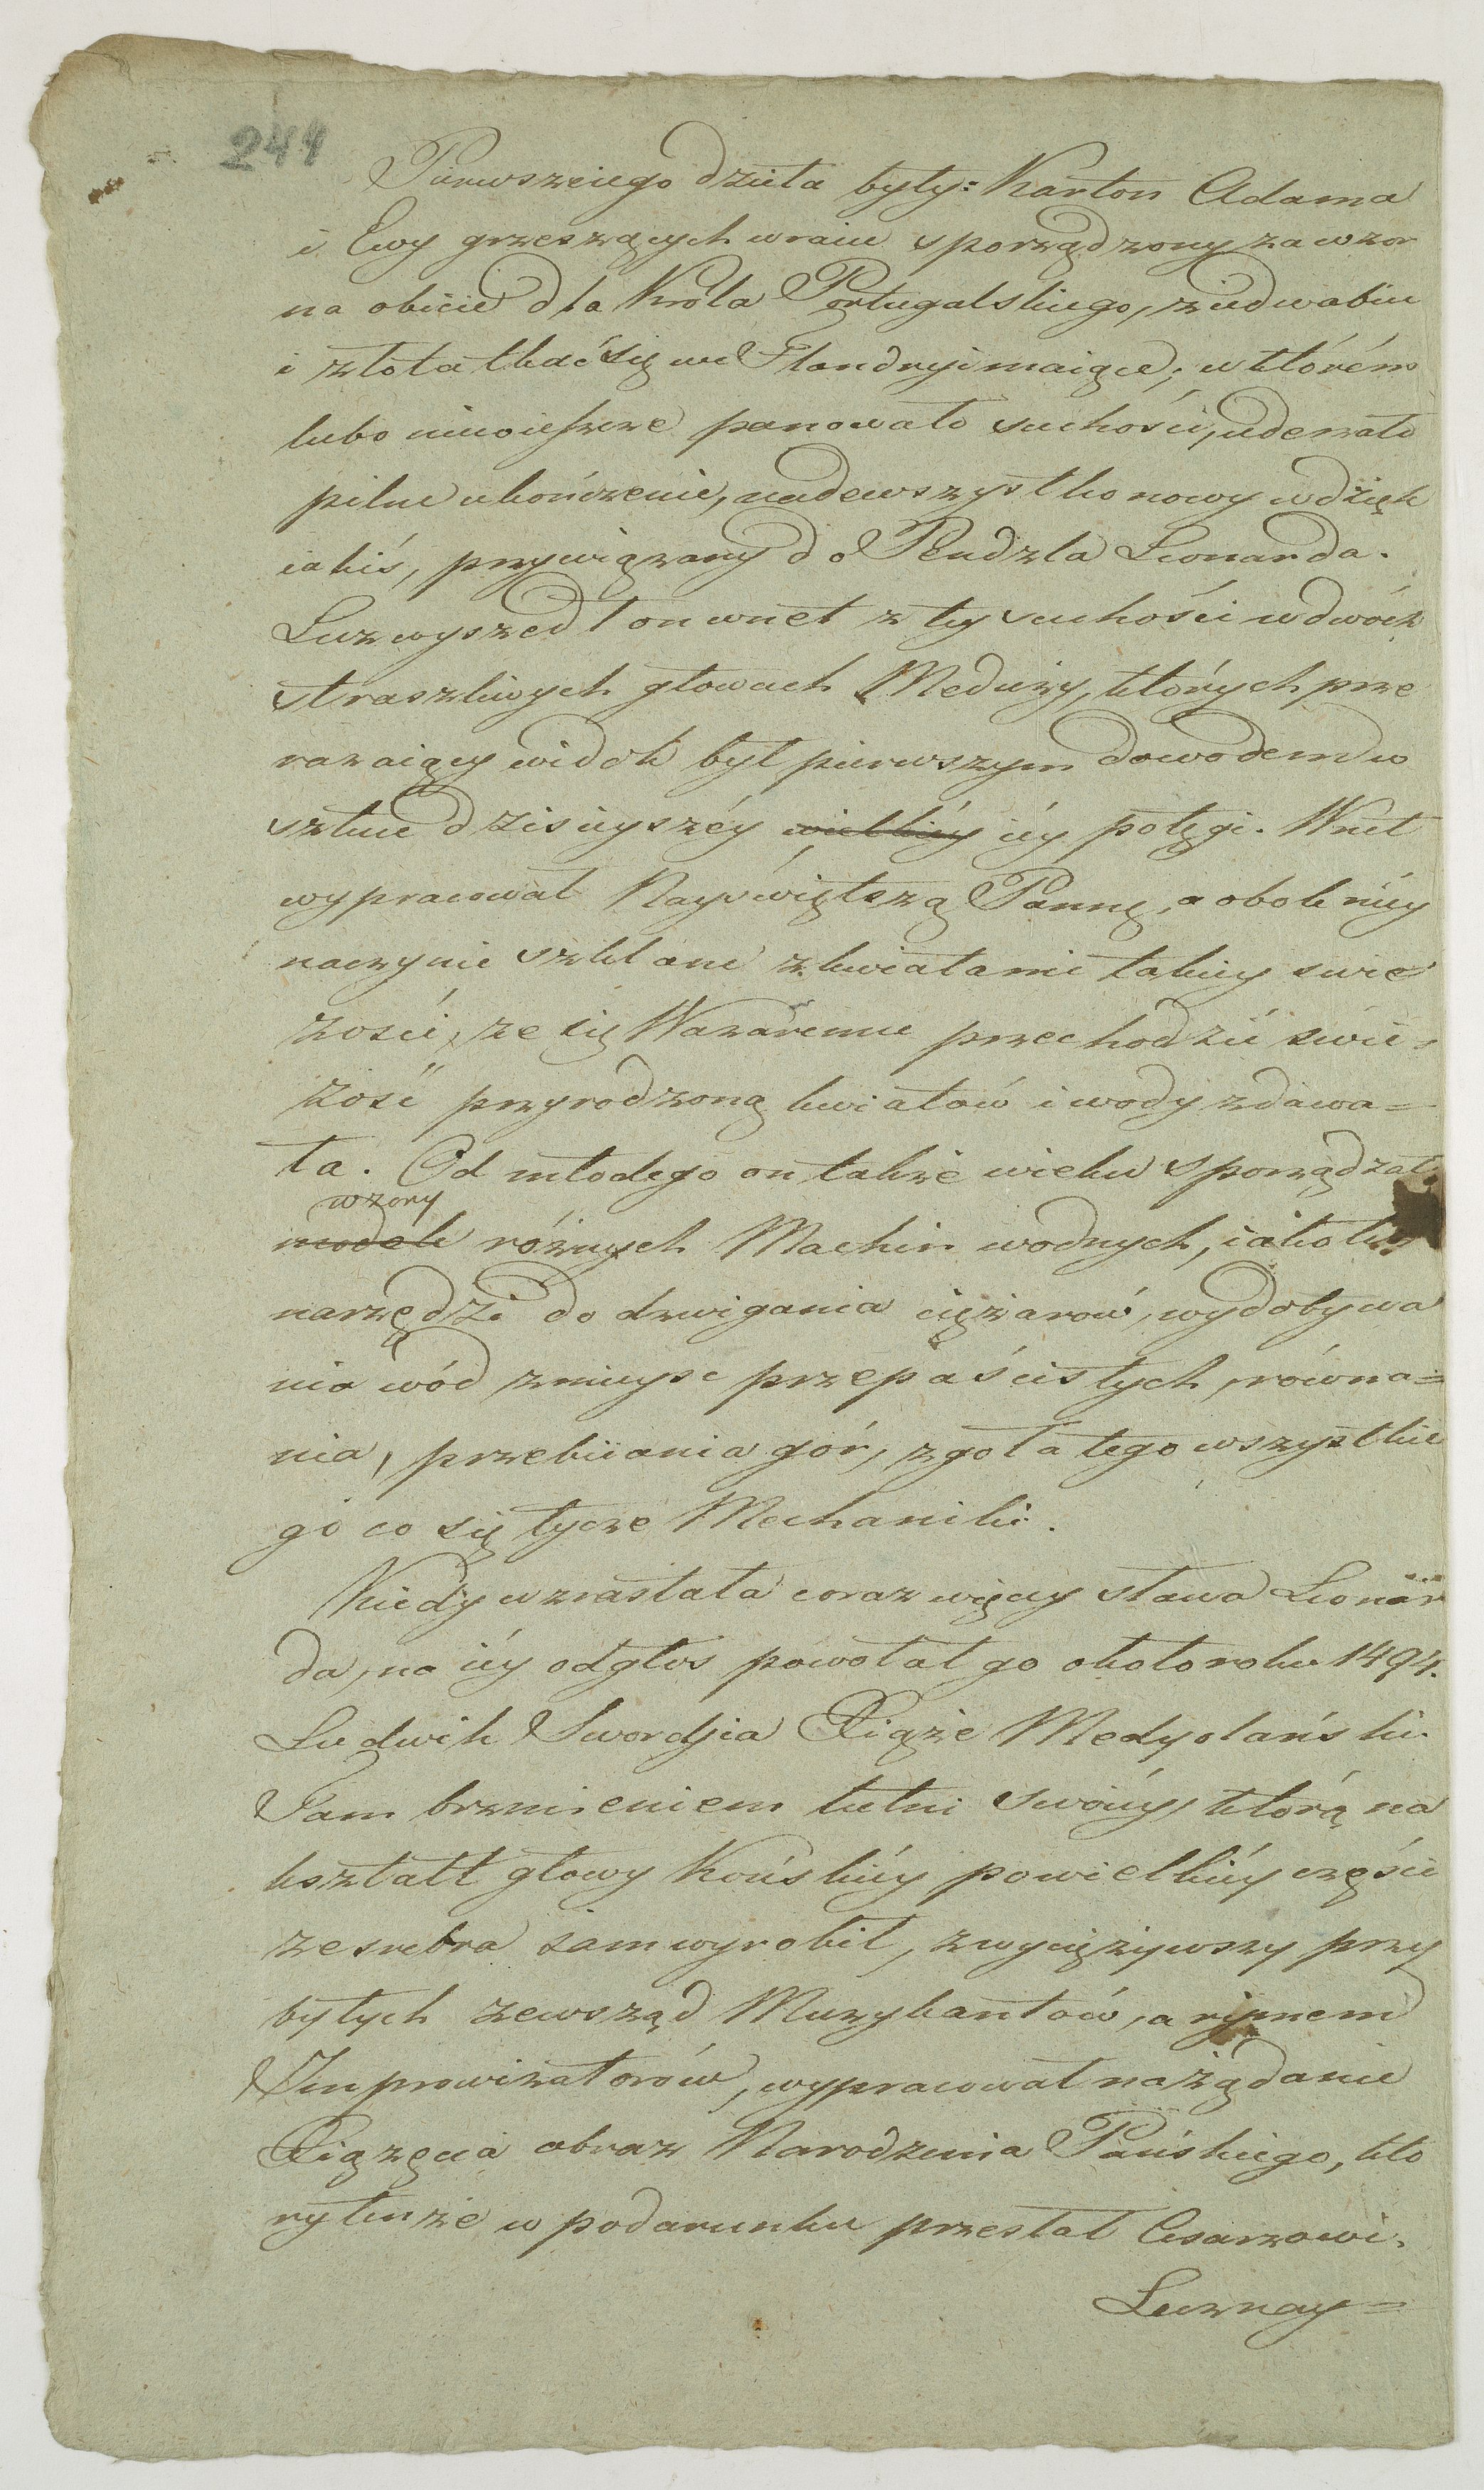 244
Pierwsze iego dzieła były: Karton Adama
i Ewy grzeszących w raiu sporządzony za wzor
na obicie dla Króla Portugalskiego, z iedwabiu
i złota tkać się we Flandryi maiące; w którém
lubo nieco ieszcze panowało suchości, uderzało
pilne ukończenie, nadewszystko nowy wdzięk
iakiś, przywiązany do Pendzla Leonarda.
Lecz wyszedł on wnet z tey suchości w dwóch
straszliwych głowach Meduzy, których prze
rażaiący widok był pierwszym dowodem w
sztuce dzisieyszéy wielkiéy iéy potęgi. Wnet
wypracował Nayświętszą Pannę, a obok niéy
naczynie szklane z kwiatami takiey swie
żości, że się Wazaremu przechodzić swie-
żość przyrodzoną kwiatów i wody zdawa=
ła. Od młodego on także wieku sporządzał
wzory
modele różnych Machin wodnych, iako też
narzędzi do dzwigania ciężarow, wydobywa
nia wód z mieysc przepaścistych, równa=
nia, przebiiania gór, zgoła tego wszystkie
go co się tycze Mechaniki.
Kiedy wzrastała coraz więcey sława Leonar
da, na iéy odgłos powołał go około roku 1494.
Ludwik Sforcyia Xiąże Medyolański.
Tam brzmieniem lutni swoiéy, którą na
kształt głowy Końskiéy po wielkiéy części
ze srebra sam wyrobił, zwyciężywszy przy
byłych zewsząd Muzykantów, a rymem
Improwizatorów, wypracował na żądanie
Xiążęcia obraz Narodzenia Pańskiego, któ
ry tenże w podarunku przesłał Cesarzowi.
Lecz nay=